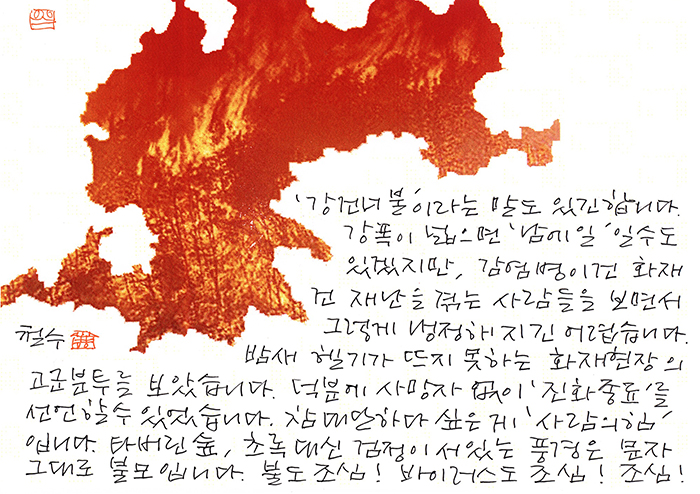 '강건너 불'이라는 말도 있긴합니다.
강폭이 넓으면 '남에일' 일수도
있겠지만, 감염병이건 화재
건 재난을 겪는 사람들을 보면서
그렇게 냉정해지긴 어렵습니다.
밤새 헬기가 뜨지 못하는 화재현장의
고군분투를 보았습니다. 덕분에 사망자 없이 '진화종료'를
선언할수 있었습니다. 참 대단하다 싶은게 '사람의힘'
입니다. 타버린 숲, 초록대신 검정이 서있는 풍경은 문자
그대로 불모입니다. 불도 조심! 바이러스도 조심! 조심!
철수